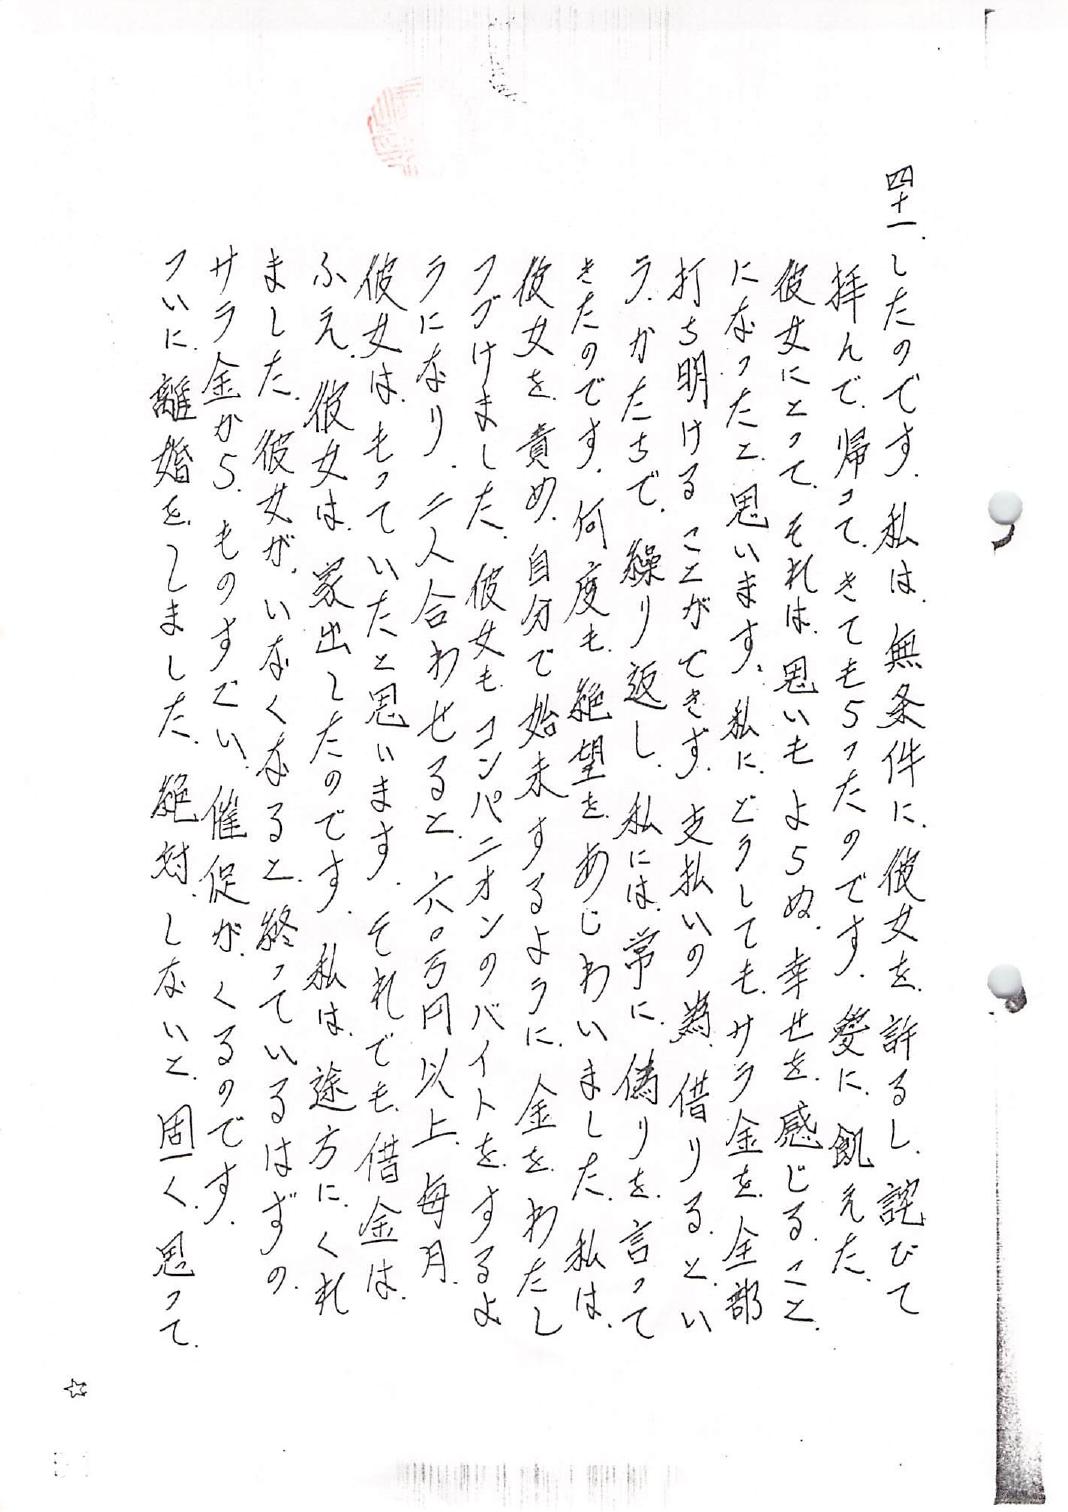 四十一、したのです。私は、無条件に、彼女を、許るし、詫びて
拝んで、帰って、きてもらったのです。愛に、飢えた、
彼女にとって、それは、思いも よらぬ、幸せを、感じる、こと、
になったと、思います。私に、どうしても、サラ金を、全部
打ち明ける ことができず、支払いの 為、借りる、とい
う、かたちで、繰り返し、私には、常に、偽りを、言って
きたのです。何度も、絶望を、あじわいました。私は、
彼女を、責め、自分で始末するように、金を、わたし
つづけました。彼女も、コンパニオンのバイトを、するよ
うになり、二人合わせると、六〇万円以上、毎月、
彼女は、もっていたと思います。それでも、借金は、
ふえ、彼女は、家出したのです。私は、途方に、くれ
ました。彼女が、いなくなると、終っているはずの、
サラ金から、ものすごい、催促が、くるのです。
ついに、離婚を、しました。絶対、しないと、固く、思って、
☆